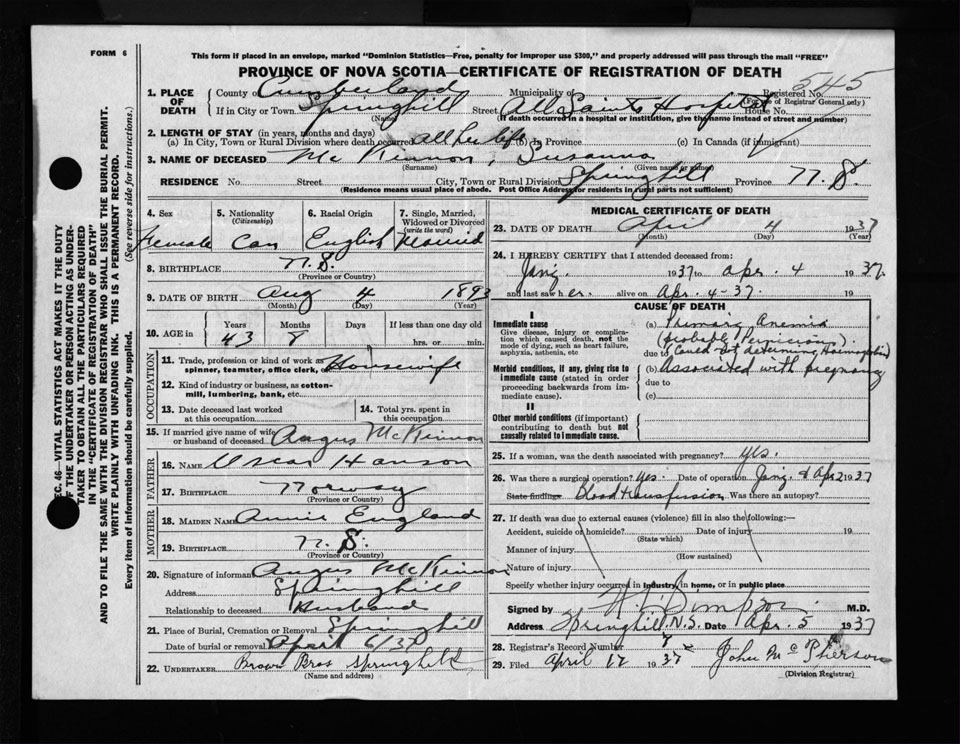 FORM 6
This form if placed in an envelope, marked "Dominion Statistics—Free, penalty for improper use $300," and properly addressed will pass through the mail "FREE"
PROVINCE OF NOVA SCOTIA—CERTIFICATE OF REGISTRATION OF DEATH
545
1. PLACE OF DEATH County of Cumberland Municipality of Registered No. (For use of Registrar General only)
If in City or Town Springhill (Name) Street All Saints Hospital House No.
(If death occurred in a hospital or institution, give the name instead of street and number)
2. LENGTH OF STAY (in years, months and days)
(a) In City, Town or Rural Division where death occurred all her life (b) In Province (c) In Canada (if immigrant)
3. NAME OF DECEASED Mc Kinnon, Susanna
(Surname) (Given name or names)
RESIDENCE No. Street City, Town or Rural Division Springhill Province N.S.
(Residence means usual place of abode. Post Office Address for residents in rural parts not sufficient)
4. Sex 5. Nationality (Citizenship) 6. Racial Origin 7. Single, Married, Widowed or Divorced (write the word)
Female Can English Married
8. BIRTHPLACE N.S.
(Province or Country)
9. DATE OF BIRTH Aug 4 1893
(Month) (Day) (Year)
10. AGE in Years Months Days If less than one day old
43 8 hrs. or min.
OCCUPATION
11. Trade, profession or kind of work as spinner, teamster, office clerk, etc. Housewife
12. Kind of industry or business, as cotton-mill, lumbering, bank, etc.
13. Date deceased last worked at this occupation 14. Total yrs. spent in this occupation
15. If married give name of wife or husband of deceased Angus McKinnon
FATHER
16. NAME Oscar Hanson
17. BIRTHPLACE Norway
(Province or Country)
MOTHER
18. MAIDEN NAME Annie England
19. BIRTHPLACE N.S.
(Province or Country)
20. Signature of informant Angus McKinnon
Address Springhill
Relationship to deceased Husband
21. Place of Burial, Cremation or Removal Springhill
Date of burial or removal April 6/37
22. UNDERTAKER Brown Bros Springhill
(Name and address)
MEDICAL CERTIFICATE OF DEATH
23. DATE OF DEATH April 4 1937
(Month) (Day) (Year)
24. I HEREBY CERTIFY that I attended deceased from:
1937 to Apr. 4 1937
and last saw her alive on Apr. 4-37. 19
CAUSE OF DEATH
I
Immediate cause
Give disease, injury or complication which caused death, not the mode of dying, such as heart failure, asphyxia, asthenia, etc
(a) Primary Anemia
(probably Pernicious)
due to Could not determine
Morbid conditions, if any, giving rise to immediate cause (stated in order proceeding backwards from immediate cause).
(b) Associated with pregnancy
due to
(c)
II
Other morbid conditions (if important) contributing to death but not causally related to immediate cause.
25. If a woman, was the death associated with pregnancy? yes.
26. Was there a surgical operation? yes. Date of operation & Apr 2 1937
State findings Blood transfusion Was there an autopsy?
27. If death was due to external causes (violence) fill in also the following:—
Accident, suicide or homicide? Date of injury 19
(State which)
Manner of injury
(How sustained)
Nature of injury
Specify whether injury occurred in industry, in home, or in public place
Signed by Simpson M.D.
Address Springhill N.S. Date Apr. 5 1937
28. Registrar's Record Number
29. Filed April 12 1937 John McPherson
(Division Registrar)
SEC. 46—VITAL STATISTICS ACT MAKES IT THE DUTY
OF THE UNDERTAKER OR PERSON ACTING AS UNDER-
TAKER TO OBTAIN ALL THE PARTICULARS REQUIRED
IN THE "CERTIFICATE OF REGISTRATION OF DEATH"
AND TO FILE THE SAME WITH THE DIVISION REGISTRAR WHO SHALL ISSUE THE BURIAL PERMIT.
WRITE PLAINLY WITH UNFADING INK. THIS IS A PERMANENT RECORD.
Every item of information should be carefully supplied. (See reverse side for instructions.)